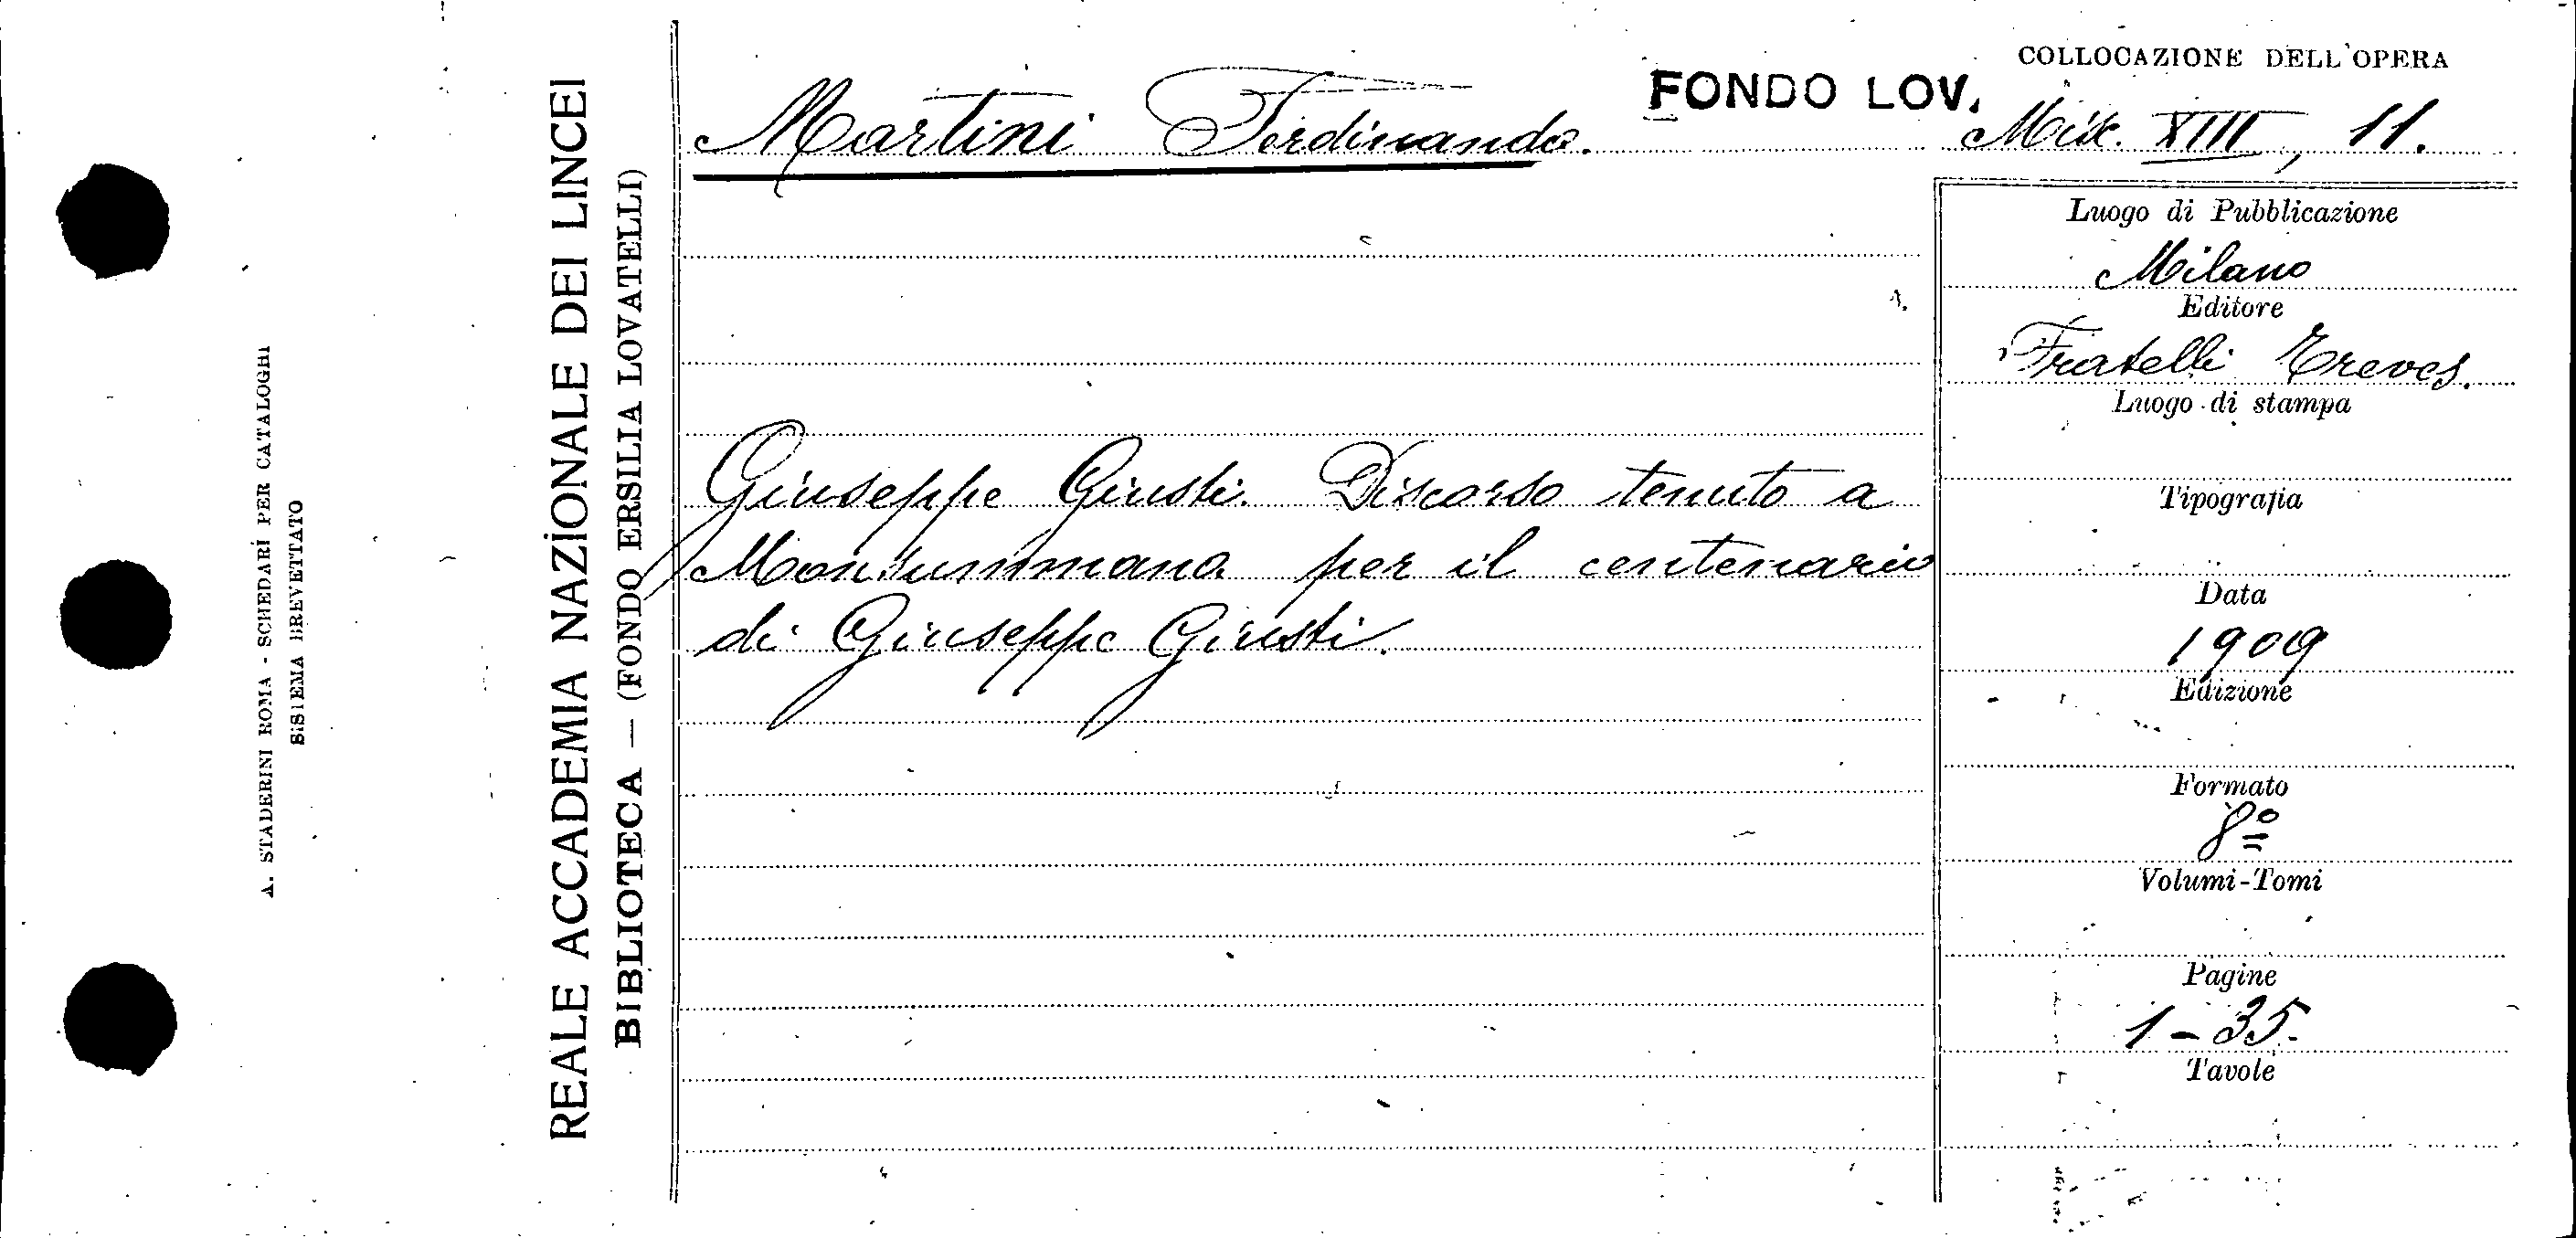 A. STADERINI ROMA - SCHEDARI PER CATALOGHI
SISTEMA BREVETTATO
REALE ACCADEMIA NAZIONALE DEI LINCEI
BIBLIOTECA — (FONDO ERSILIA LOVATELLI)
COLLOCAZIONE DELL'OPERA
FONDO LOV.
Martini Ferdinando.
Misc. XIII, 11.
Giuseppe Giusti. Discorso tenuto a
Monsummano per il centenario
di Giuseppe Giusti.
Luogo di Pubblicazione
Milano
Editore
Fratelli Treves.
Luogo di stampa
Tipografia
Data
1909
Edizione
Formato
8º
Volumi-Tomi
Pagine
1-35.
Tavole